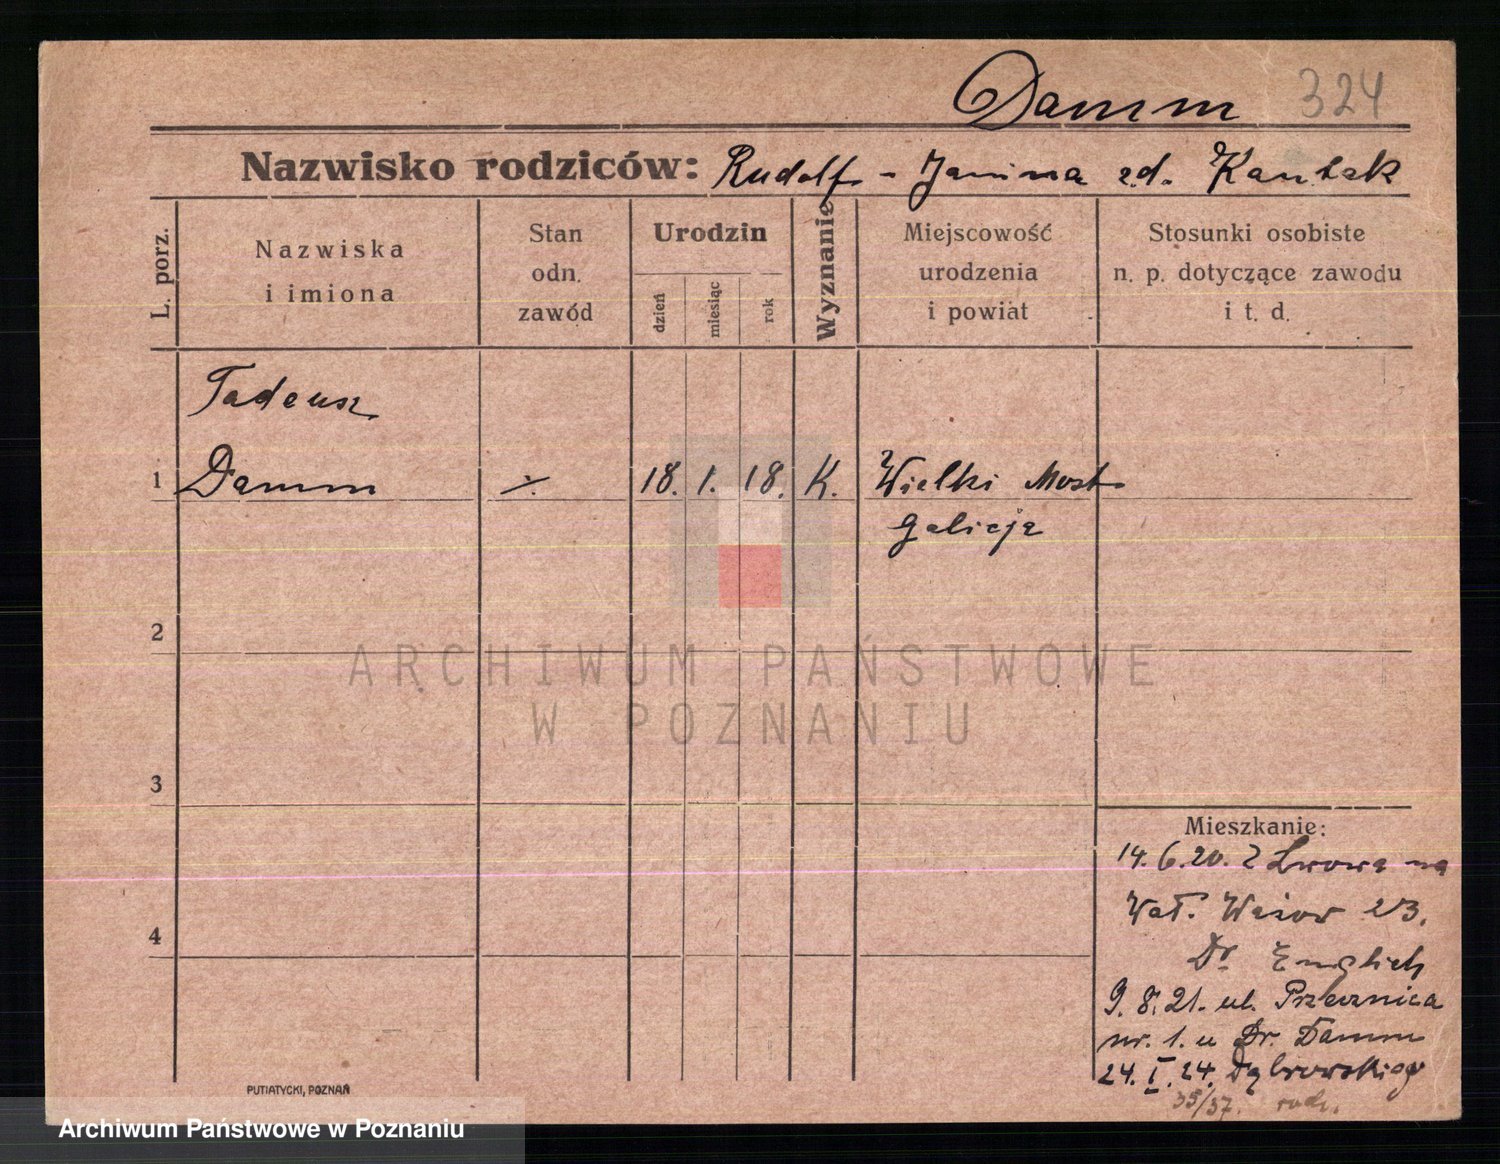 Damm 324
Nazwisko rodziców: Rudolf - Janina zd. Kantak
L. porz.
Nazwiska
i imiona
Stan
odn.
zawód
Urodzin
dzień
miesiąc
rok
Wyznanie
Miejscowość
urodzenia
i powiat
Stosunki osobiste
n. p. dotyczące zawodu
i t. d.
Tadeusz
1 Damm ·/. 18. 1. 18. K. Wielki Most
Galicja
2
ARCHIWUM PAŃSTWOWE
W POZNANIU
3
4
Mieszkanie:
14.6.20. z Lwowa na
Wał. Wazów 23.
Dr. Englich
9.8.21. ul. Przecznica
nr. 1. u Dr. Damm
24. I. 24. Dąbrowskiego
35/37. rodz.
PUTIATYCKI, POZNAŃ
Archiwum Państwowe w Poznaniu